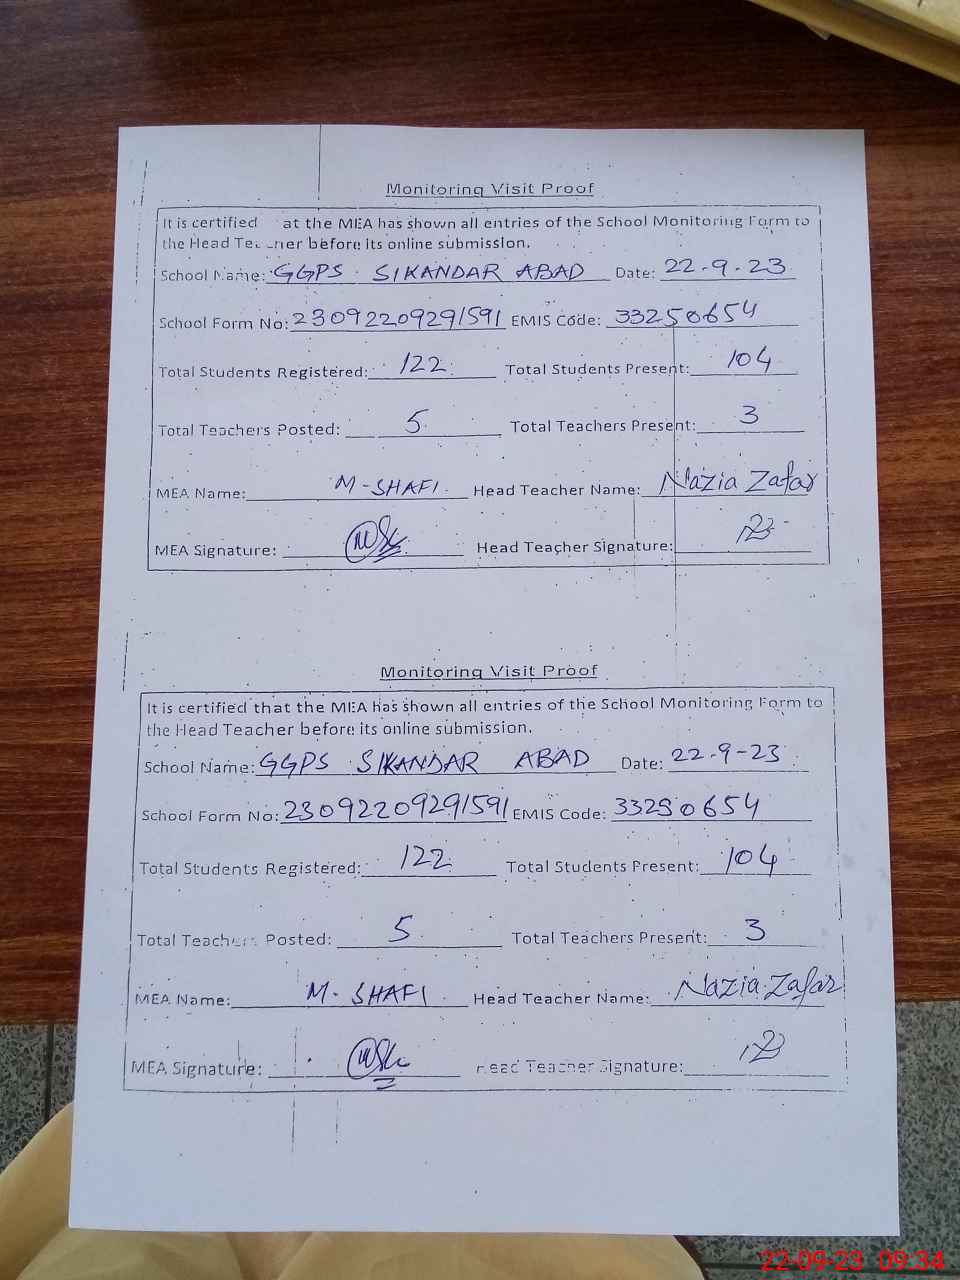 Monitoring Visit Proof
It is certified at the MEA has shown all entries of the School Monitoring Form to
the Head Teacher before its online submission.
School Name: GGPS SIKANDAR ABAD Date: 22-9-23
School Form No: 23092209291591 EMIS Code: 33250654
Total Students Registered: 122 Total Students Present: 104
Total Teachers Posted: 5 Total Teachers Present: 3
MEA Name: M-SHAFI. Head Teacher Name: Nazia Zafar
MEA Signature: Head Teacher Signature:
Monitoring Visit Proof
It is certified that the MEA has shown all entries of the School Monitoring Form to
the Head Teacher before its online submission.
School Name: GGPS SIKANDAR ABAD Date: 22-9-23
School Form No: 23092209291591 EMIS Code: 33250654
Total Students Registered: 122 Total Students Present: 104
Total Teachers Posted: 5 Total Teachers Present: 3
MEA Name: M. SHAFI Head Teacher Name: Nazia Zafar
MEA Signature: Head Teacher Signature:
22-09-23 09:34